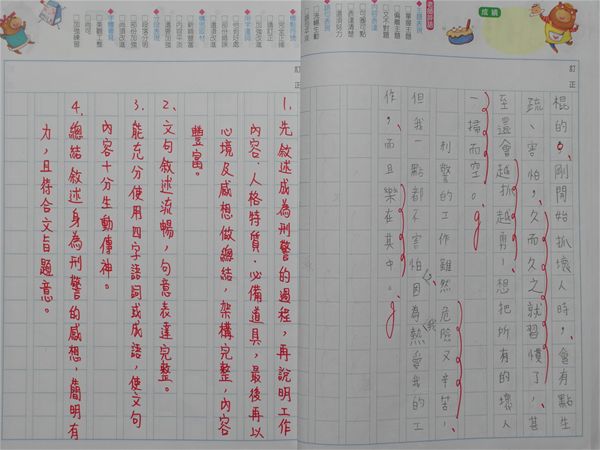 成績
老師評語
訂正
棍的。剛開始抓壞人時，會有點生
疏、害怕，久而久之就習慣了，甚
至還會越抓越勇！想把所有的壞人
一掃而空。
刑警的工作雖然危險又辛苦，
但我一點都不害怕，因為我熱愛我的工
作，而且樂在其中。
訂正
1. 先敘述成為刑警的過程，再說明工作
內容、人格特質、必備道具，最後再以
心境及感想做總結，架構完整，內容
豐富。
2、文句敘述流暢，句意表達完整。
3、能充分使用四字語詞或成語，使文句
內容十分生動傳神。
4、總結敘述身為刑警的感想，簡明有
力，且符合文旨題意。